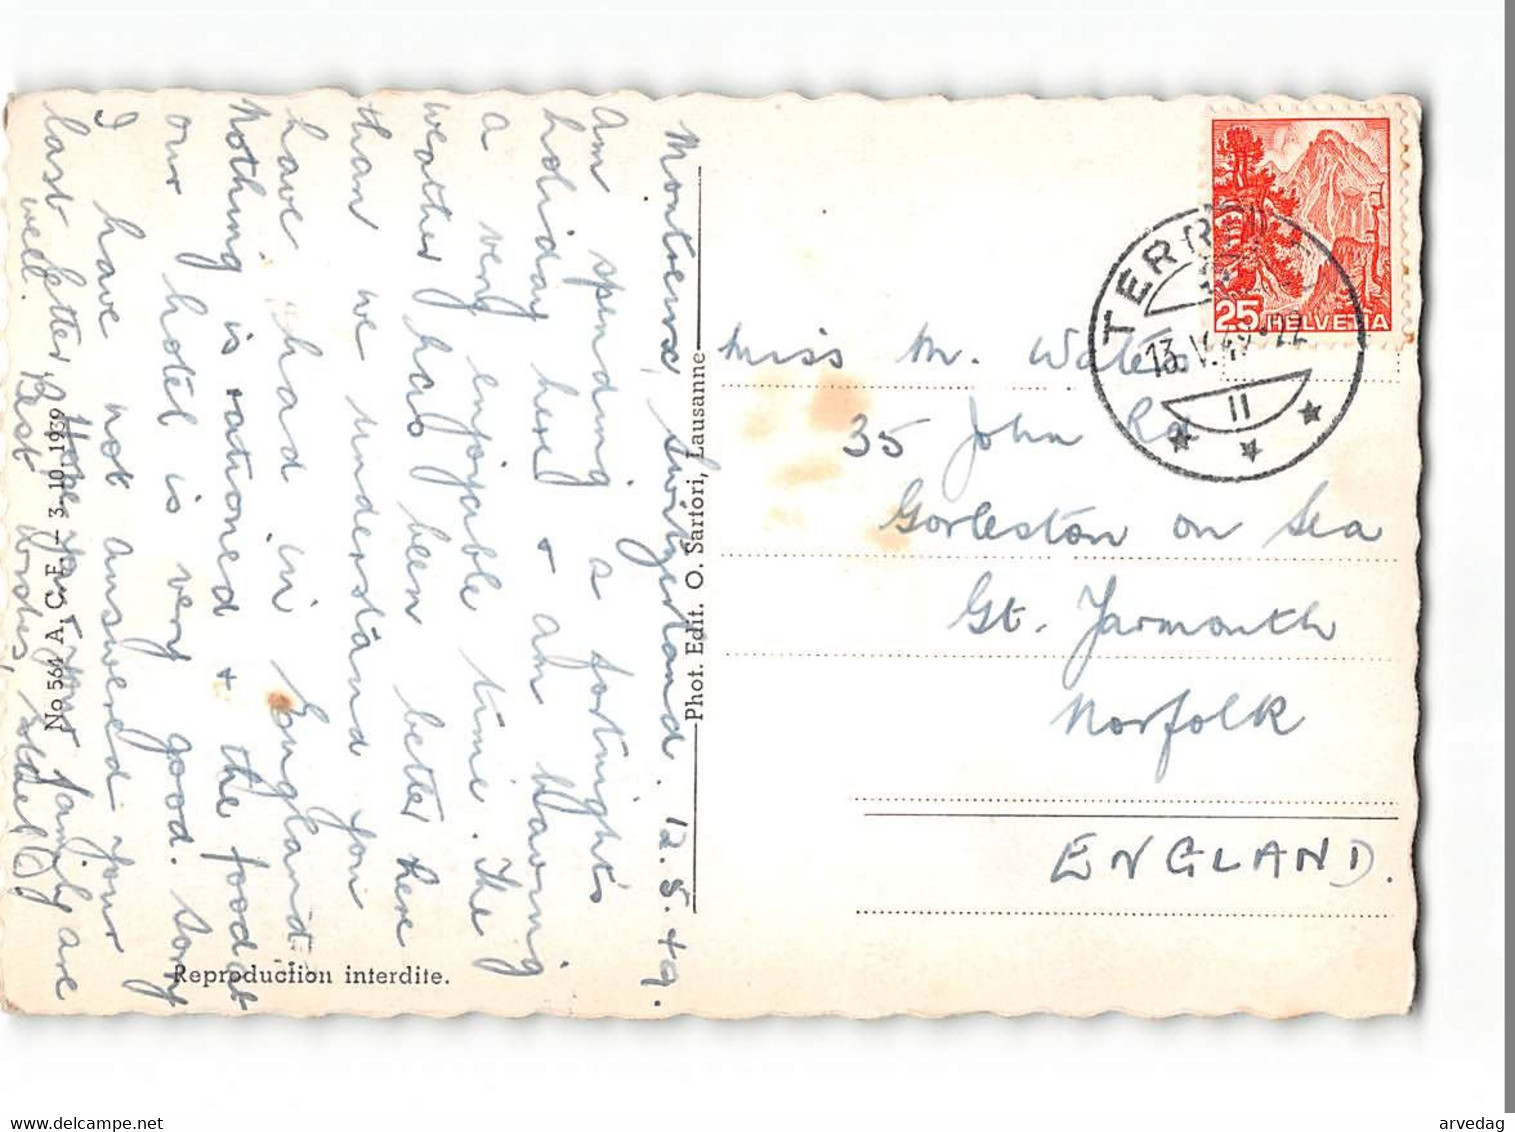 Montreux, Switzerland. 12.5.49.
Am spending a fortnight's
holiday here + am having
a very enjoyable time. The
weather has been better here
than we understand you
have had in England
Nothing is rationed + the food at
our hotel is very good. Sorry
I have not answered your
last letter. Hope you + your family are
well. Best wishes,
No 564 A. C. F. — 3-10 1939
Reproduction interdite.
Phot. Edit. O. Sartori, Lausanne
25 HELVETIA
13. V. 49 - 22
II
Miss M. Waters
35 John Rd
Gorleston on Sea
Gt. Yarmouth
Norfolk
ENGLAND.
www.delcampe.net
arvedag